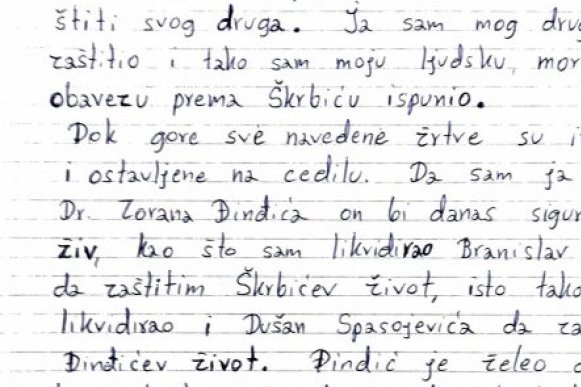 štiti svog druga. Ja sam mog
zaštitio i tako sam moju ljudsku,
obavezu prema Škrbiću ispunio.
Dok gore sve navedene žrtve su
i ostavljene na cedilu. Da sam ja
Dr. Zorana Đinđića on bi danas
živ, kao što sam likvidirao Branislav
da zaštitim Škrbićev život, isto tako
likvidirao i Dušan Spasojevića da
Đinđićev život. Đinđić je želeo